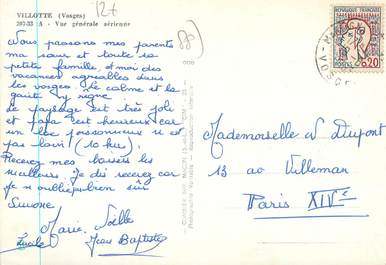 VILLOTTE (Vosges)
203-33 A - Vue générale aérienne
127
88
Nous passons mes parents
ma sœur et toute sa
petite famille et moi des
vacances agréables dans
les vosges. Le calme et la
gaité y règne
Le paysage est très joli
et papa est heureux car
un lac poissonneux n'est
pas loin! (10 km).
Recevez mes baisers les
meilleurs. Je dis recevez car
je n'oublie pas
Suzone
Marie. Noëlle
Lucile Jean Baptiste
REPUBLIQUE FRANÇAISE
POSTES 0,20
Mademoiselle N Dupont
13 av Villemain
Paris XIVè